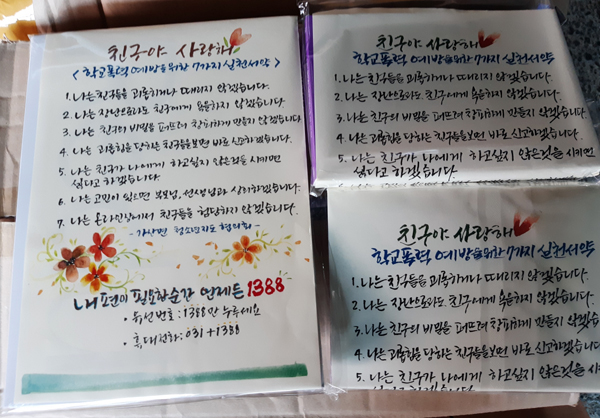 친구야 사랑해
<학교폭력 예방을 위한 7가지 실천서약>
1. 나는 친구들을 괴롭히거나 때리지 않겠습니다.
2. 나는 장난으로라도 친구에게 욕을하지 않겠습니다
3. 나는 친구의 비밀을 퍼뜨려 창피하게 만들지 않겠습니다.
4. 나는 괴롭힘을 당하는 친구들을보면 바로 신고하겠습니다.
5. 나는 친구가 나에게 하고싶지 않은것을 시키면
싫다고 하겠습니다.
6. 나는 고민이 있으면 부모님, 선생님과 상의하겠습니다.
7. 나는 온라인상에서 친구들을 험담하지 않겠습니다.
- 가산면 청소년지도 협의회 -
내 편이 필요한 순간 언제든 1388
· 유선번호 : 1388만 누르세요
· 휴대전화 : 031 + 1388
친구야 사랑해
학교폭력 예방을 위한 7가지 실천서약
1. 나는 친구들을 괴롭히거나 때리지 않겠습니다.
2. 나는 장난으로라도 친구에게 욕을하지 않겠습니다.
3. 나는 친구의 비밀을 퍼뜨려 창피하게 만들지 않겠습니다.
4. 나는 괴롭힘을 당하는 친구들을보면 바로 신고하겠습니다.
5. 나는 친구가 나에게 하고싶지 않은것을 시키면
싫다고 하겠습니다.
친구야 사랑해
학교폭력 예방을 위한 7가지 실천서약
1. 나는 친구들을 괴롭히거나 때리지 않겠습니다.
2. 나는 장난으로라도 친구에게 욕을하지 않겠습니다.
3. 나는 친구의 비밀을 퍼뜨려 창피하게 만들지 않겠습니
4. 나는 괴롭힘을 당하는 친구들을보면 바로 신고하겠습
5. 나는 친구가 나에게 하고싶지 않은것을 시
싫다고 하겠습니다